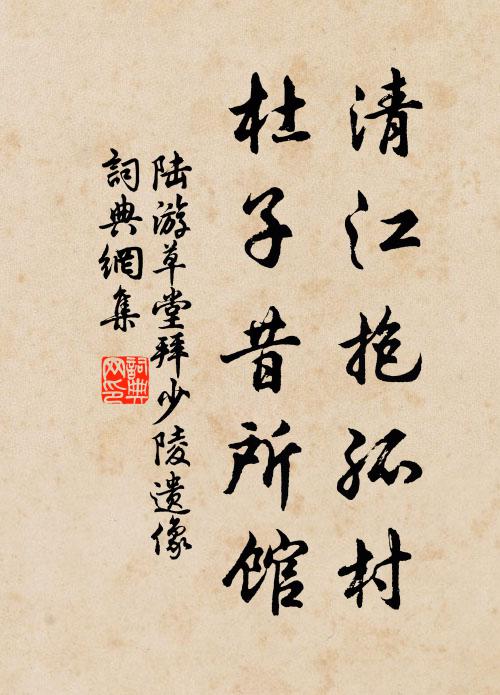 清江抱孤村
杜子昔所館
陆游草堂拜少陵遗像
詞典網集
詞典网印